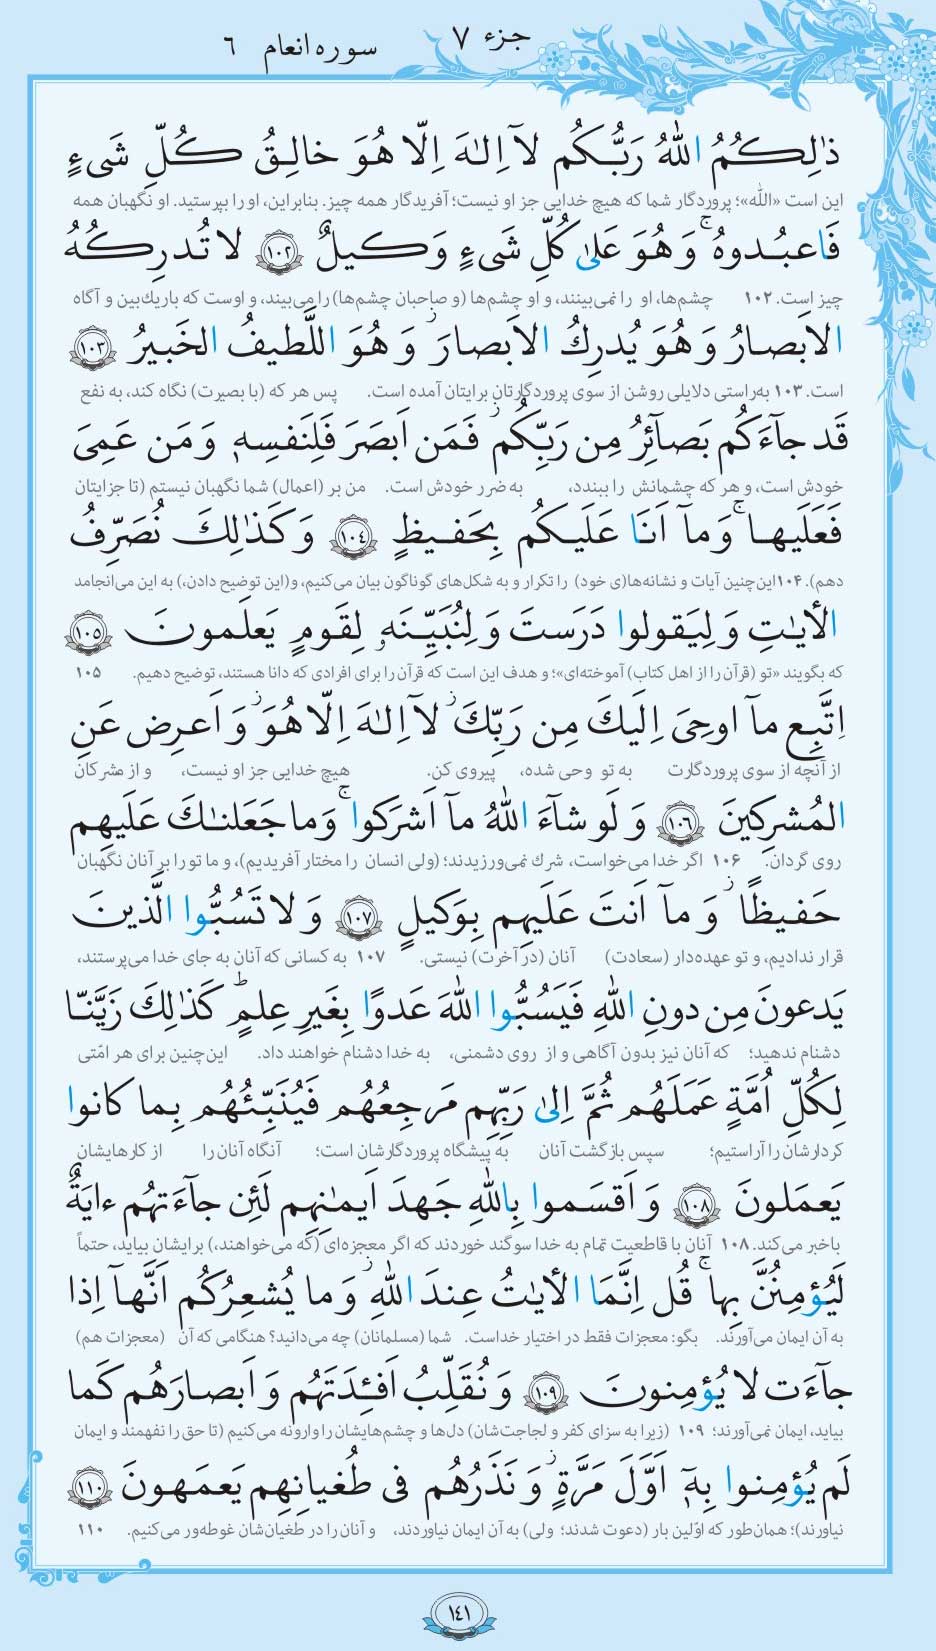 جزء ۷
سوره انعام ۶
ذٰلِكُمُ اللّٰهُ رَبُّكُم لآ اِلٰهَ اِلّا هُوَ خالِقُ كُلِّ شَیءٍ
این است «اللّٰه»؛ پروردگار شما که هیچ خدایی جز او نیست؛ آفریدگار همه چیز. بنابراین، او را بپرستید. او نگهبان همه
فَاعبُدوهُ ۚ وَ هُوَ عَلیٰ كُلِّ شَیءٍ وَكیلٌ ١٠٢ لا تُدرِكُهُ
چیز است. ۱۰۲ چشم‌ها، او را نمی‌بینند، و او چشم‌ها (و صاحبان چشم‌ها) را می‌بیند، و اوست که باریک‌بین و آگاه
الاَبصارُ وَ هُوَ یُدرِكُ الاَبصارَ ۖ وَ هُوَ اللَّطیفُ الخَبیرُ ١٠٣
است. ۱۰۳ به‌راستی دلایلی روشن از سوی پروردگارتان برایتان آمده است. پس هر که (با بصیرت) نگاه کند، به نفع
قَد جآءَكُم بَصآئِرُ مِن رَبِّكُم ۖ فَمَن اَبصَرَ فَلِنَفسِهٖ وَ مَن عَمِیَ
خودش است، و هر که چشمانش را ببندد، به ضرر خودش است. من بر (اعمال) شما نگهبان نیستم (تا جزایتان
فَعَلَیها ۚ وَ مآ اَنَا عَلَیكُم بِحَفیظٍ ١٠٤ وَ كَذٰلِكَ نُصَرِّفُ
دهم). ۱۰۴ این‌چنین آیات و نشانه‌ها(ی خود) را تکرار و به شکل‌های گوناگون بیان می‌کنیم، و(این توضیح دادن،) به این می‌انجامد
الأیٰتِ وَ لِیَقولوا دَرَستَ وَ لِنُبَیِّنَهٗ لِقَومٍ یَعلَمونَ ١٠٥
که بگویند «تو (قرآن را از اهل کتاب) آموخته‌ای»؛ و هدف این است که قرآن را برای افرادی که دانا هستند، توضیح دهیم. ۱۰۵
اِتَّبِع مآ اوحِیَ اِلَیكَ مِن رَبِّكَ ۖ لآ اِلٰهَ اِلّا هُوَ ۖ وَ اَعرِض عَنِ
از آنچه از سوی پروردگارت به تو وحی شده، پیروی کن. هیچ خدایی جز او نیست، و از مشرکان
المُشرِكینَ ١٠٦ وَ لَو شآءَ اللّٰهُ مآ اَشرَكوا ۚ وَ ما جَعَلنٰكَ عَلَیهِم
روی گردان. ۱۰۶ اگر خدا می‌خواست، شرک نمی‌ورزیدند؛ (ولی انسان را مختار آفریدیم)، و ما تو را بر آنان نگهبان
حَفیظًا ۖ وَ مآ اَنتَ عَلَیهِم بِوَكیلٍ ١٠٧ وَ لا تَسُبُّوا الَّذینَ
قرار ندادیم، و تو عهده‌دار (سعادت) آنان (در آخرت) نیستی. ۱۰۷ به کسانی که آنان به جای خدا می‌پرستند،
یَدعونَ مِن دونِ اللّٰهِ فَیَسُبُّوا اللّٰهَ عَدوًا بِغَیرِ عِلمٍ ۗ كَذٰلِكَ زَیَّنّا
دشنام ندهید؛ که آنان نیز بدون آگاهی و از روی دشمنی، به خدا دشنام خواهند داد. این‌چنین برای هر امّتی
لِكُلِّ اُمَّةٍ عَمَلَهُم ثُمَّ اِلیٰ رَبِّهِم مَرجِعُهُم فَیُنَبِّئُهُم بِما كانوا
کردارشان را آراستیم؛ سپس بازگشت آنان به پیشگاه پروردگارشان است؛ آنگاه آنان را از کارهایشان
یَعمَلونَ ١٠٨ وَ اَقسَموا بِاللّٰهِ جَهدَ اَیمٰنِهِم لَئِن جآءَتهُم ءایَةٌ
باخبر می‌کند. ۱۰۸ آنان با قاطعیت تمام به خدا سوگند خوردند که اگر معجزه‌ای (که می‌خواهند،) برایشان بیاید، حتماً
لَیُؤمِنُنَّ بِها ۚ قُل اِنَّمَا الأیٰتُ عِندَ اللّٰهِ ۖ وَ ما یُشعِرُكُم اَنَّهآ اِذا
به آن ایمان می‌آورند. بگو: معجزات فقط در اختیار خداست. شما (مسلمانان) چه می‌دانید؟ هنگامی که آن (معجزات هم)
جآءَت لا یُؤمِنونَ ١٠٩ وَ نُقَلِّبُ اَفئِدَتَهُم وَ اَبصارَهُم كَما
بیاید، ایمان نمی‌آورند؛ ۱۰۹ (زیرا به سزای کفر و لجاجت‌شان) دل‌ها و چشم‌هایشان را وارونه می‌کنیم (تا حق را نفهمند و ایمان
لَم یُؤمِنوا بِهٖٓ اَوَّلَ مَرَّةٍ ۖ وَ نَذَرُهُم فی طُغیانِهِم یَعمَهونَ ١١٠
نیاورند)؛ همان‌طور که اوّلین بار (دعوت شدند؛ ولی) به آن ایمان نیاوردند، و آنان را در طغیان‌شان غوطه‌ور می‌کنیم. ۱۱۰
١٤١